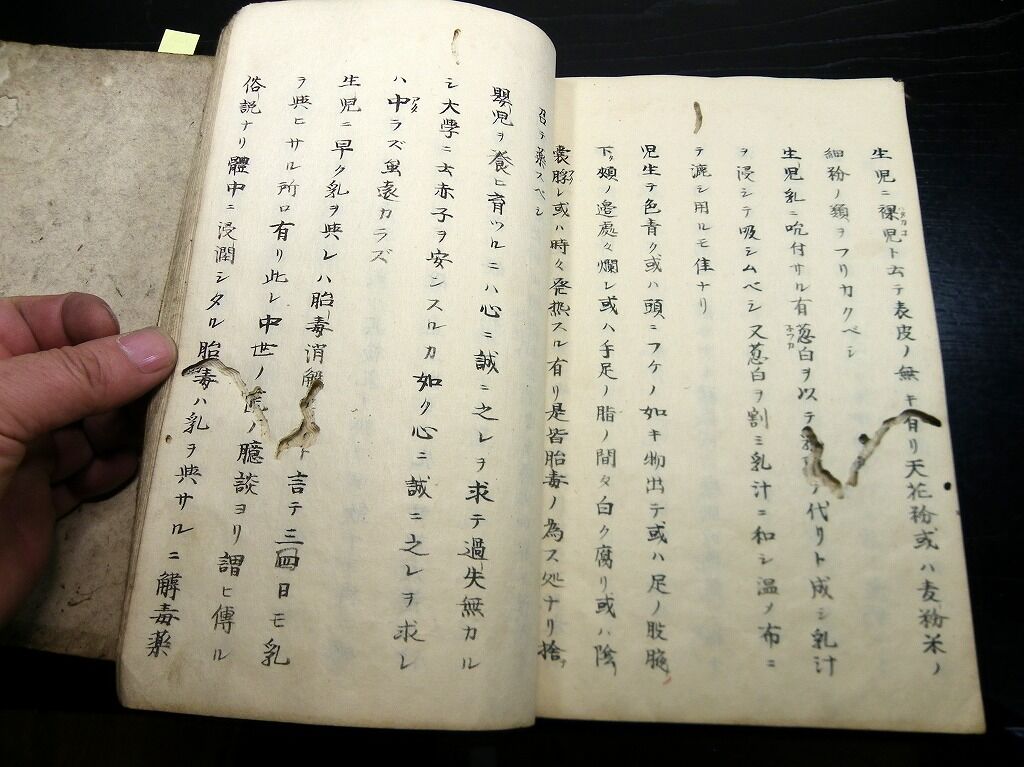 生児ニ裸児ト云テ表皮ノ無キ有リ天花粉或ハ麦粉米ノ
細粉ノ類ヲフリカクベシ
生児乳ニ吮付サル有葱白ヲ以テ代リト成シ乳汁
ヲ浸シテ吸シムベシ又葱白ヲ割ミ乳汁ニ和シ温メ布ニ
テ漉シ用ルモ佳ナリ
児生テ色青ク或ハ頭ニフケノ如キ物出テ或ハ足ノ肢腕
下タ頰ノ邉處々爛レ或ハ手足ノ脂ノ間タ白ク腐リ或ハ陰
嚢脬レ或ハ時々発热スル有リ是皆胎毒ノ為ス処ナリ捨
テ薬スベシ
嬰児ヲ養ヒ育ツルニハ心ニ誠ニ之レヲ求テ過失無カル
シ大學ニ云赤子ヲ安ンスルカ如ク心ニ誠ニ之レヲ求レ
ハ中ラズ虽遠カラズ
生児ニ早ク乳ヲ與レハ胎毒消解ト言テ三四日モ乳
ヲ與ヒサル所ロ有リ此レ中世ノ医ノ臆談ヨリ謂ヒ傳ル
俗説ナリ體中ニ浸潤シタル胎毒ハ乳ヲ與サルニ解毒薬